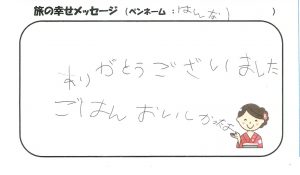 旅の幸せメッセージ (ペンネーム：はしなり)
ありがとうございました
ごはん おいしかったよ